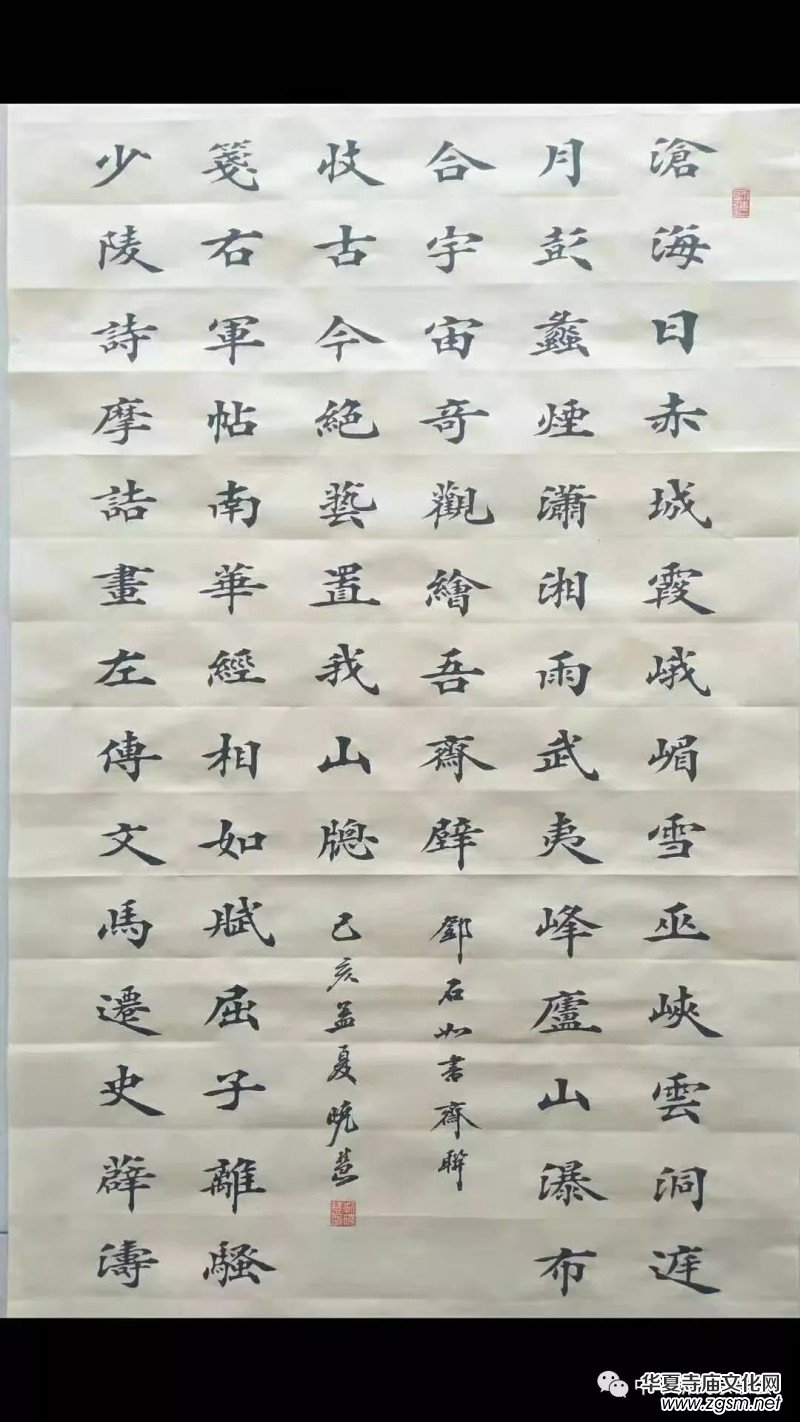 滄海日赤城霞峨嵋雪巫峽雲洞庭
月彭蠡煙瀟湘雨武夷峰廬山瀑布
合宇宙奇觀繪吾齋壁
鄧石如書齋聯
少陵詩摩詰畫左傳文馬遷史薛濤
箋右軍帖南華經相如賦屈子離騷
收古今絕藝置我山牕
己亥孟夏晓慧
华夏寺庙文化网
www.zgsm.net